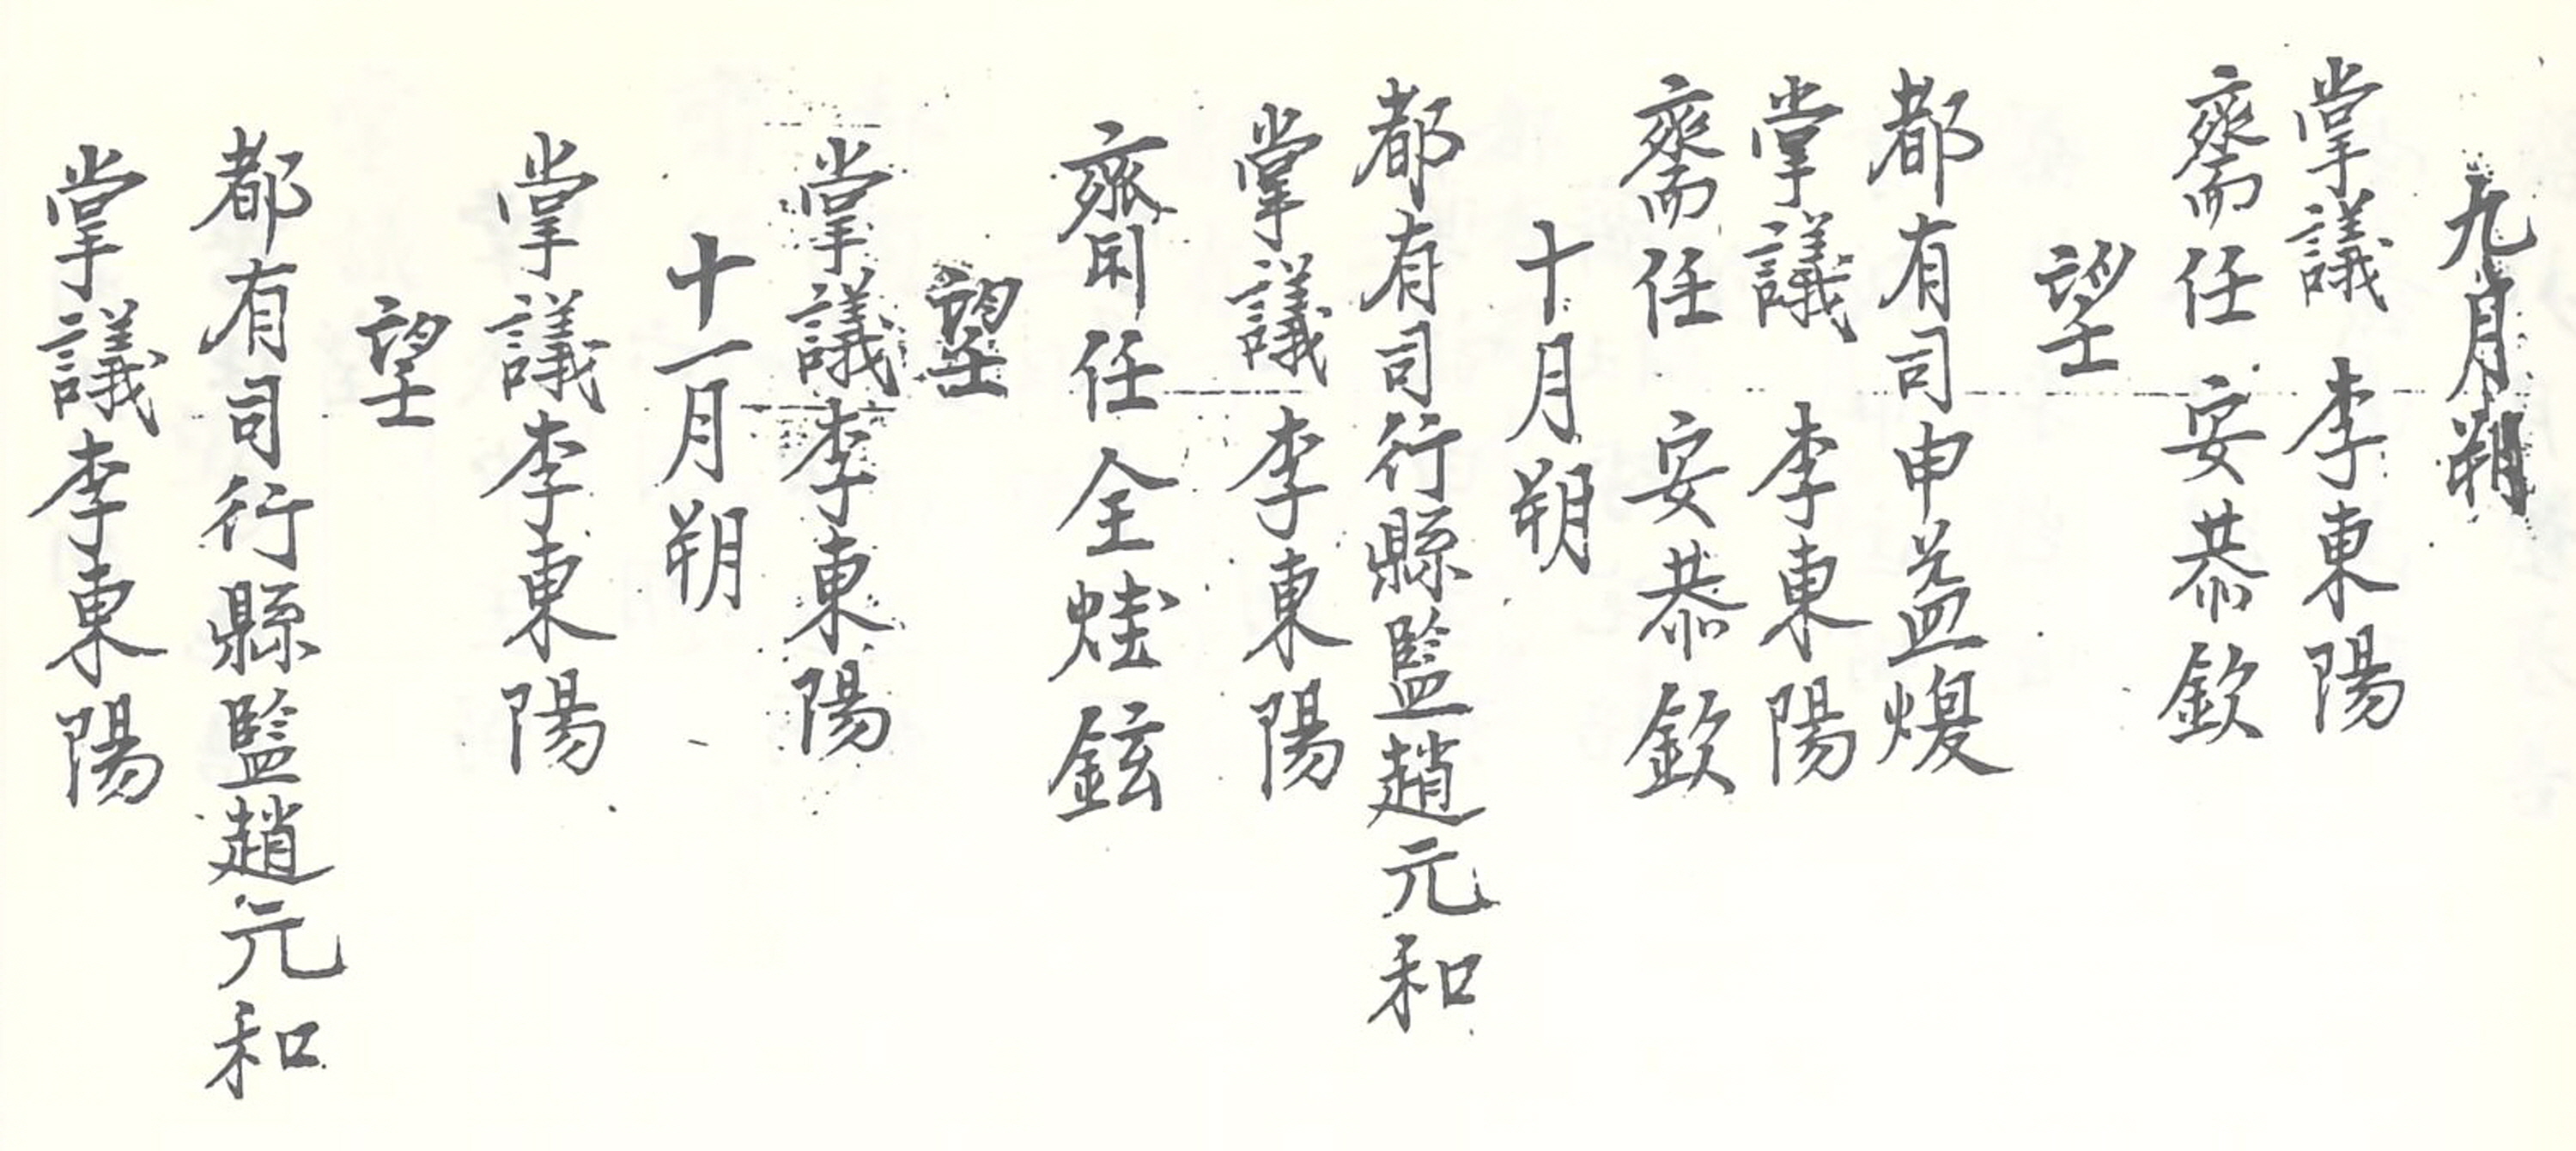 九月朔
掌議 李東陽
齋任 安恭欽
望
都有司申益熳
掌議 李東陽
齋任 安恭欽
十月朔
都有司行縣監趙元和
掌議 李東陽
齋任 全烓鉉
望
掌議李東陽
十一月朔
掌議李東陽
望
都有司行縣監趙元和
掌議李東陽